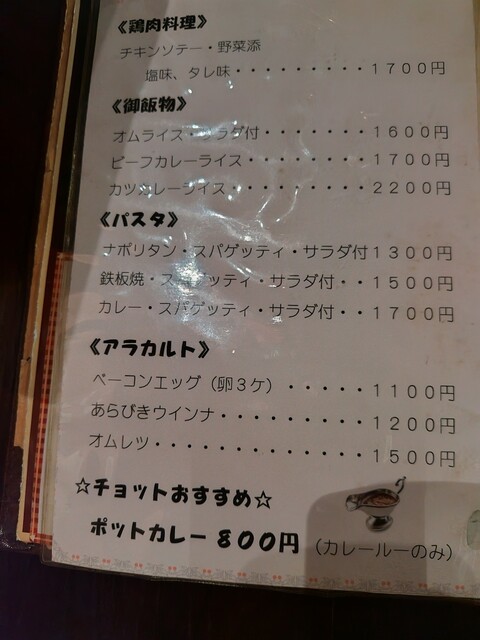 《鶏肉料理》
チキンソテー・野菜添
塩味、タレ味・・・・・・・・・1700円
《御飯物》
オムライス・サラダ付・・・・・・・1600円
ビーフカレーライス・・・・・・・・1700円
カツカレーライス・・・・・・・・・2200円
《パスタ》
ナポリタン・スパゲッティ・サラダ付1300円
鉄板焼・スパゲッティ・サラダ付・・1500円
カレー・スパゲッティ・サラダ付・・1700円
《アラカルト》
ベーコンエッグ(卵3ケ)・・・・・1100円
あらびきウインナ・・・・・・・・・1200円
オムレツ・・・・・・・・・・・・・1500円
☆チョットおすすめ☆
ポットカレー800円(カレールーのみ)